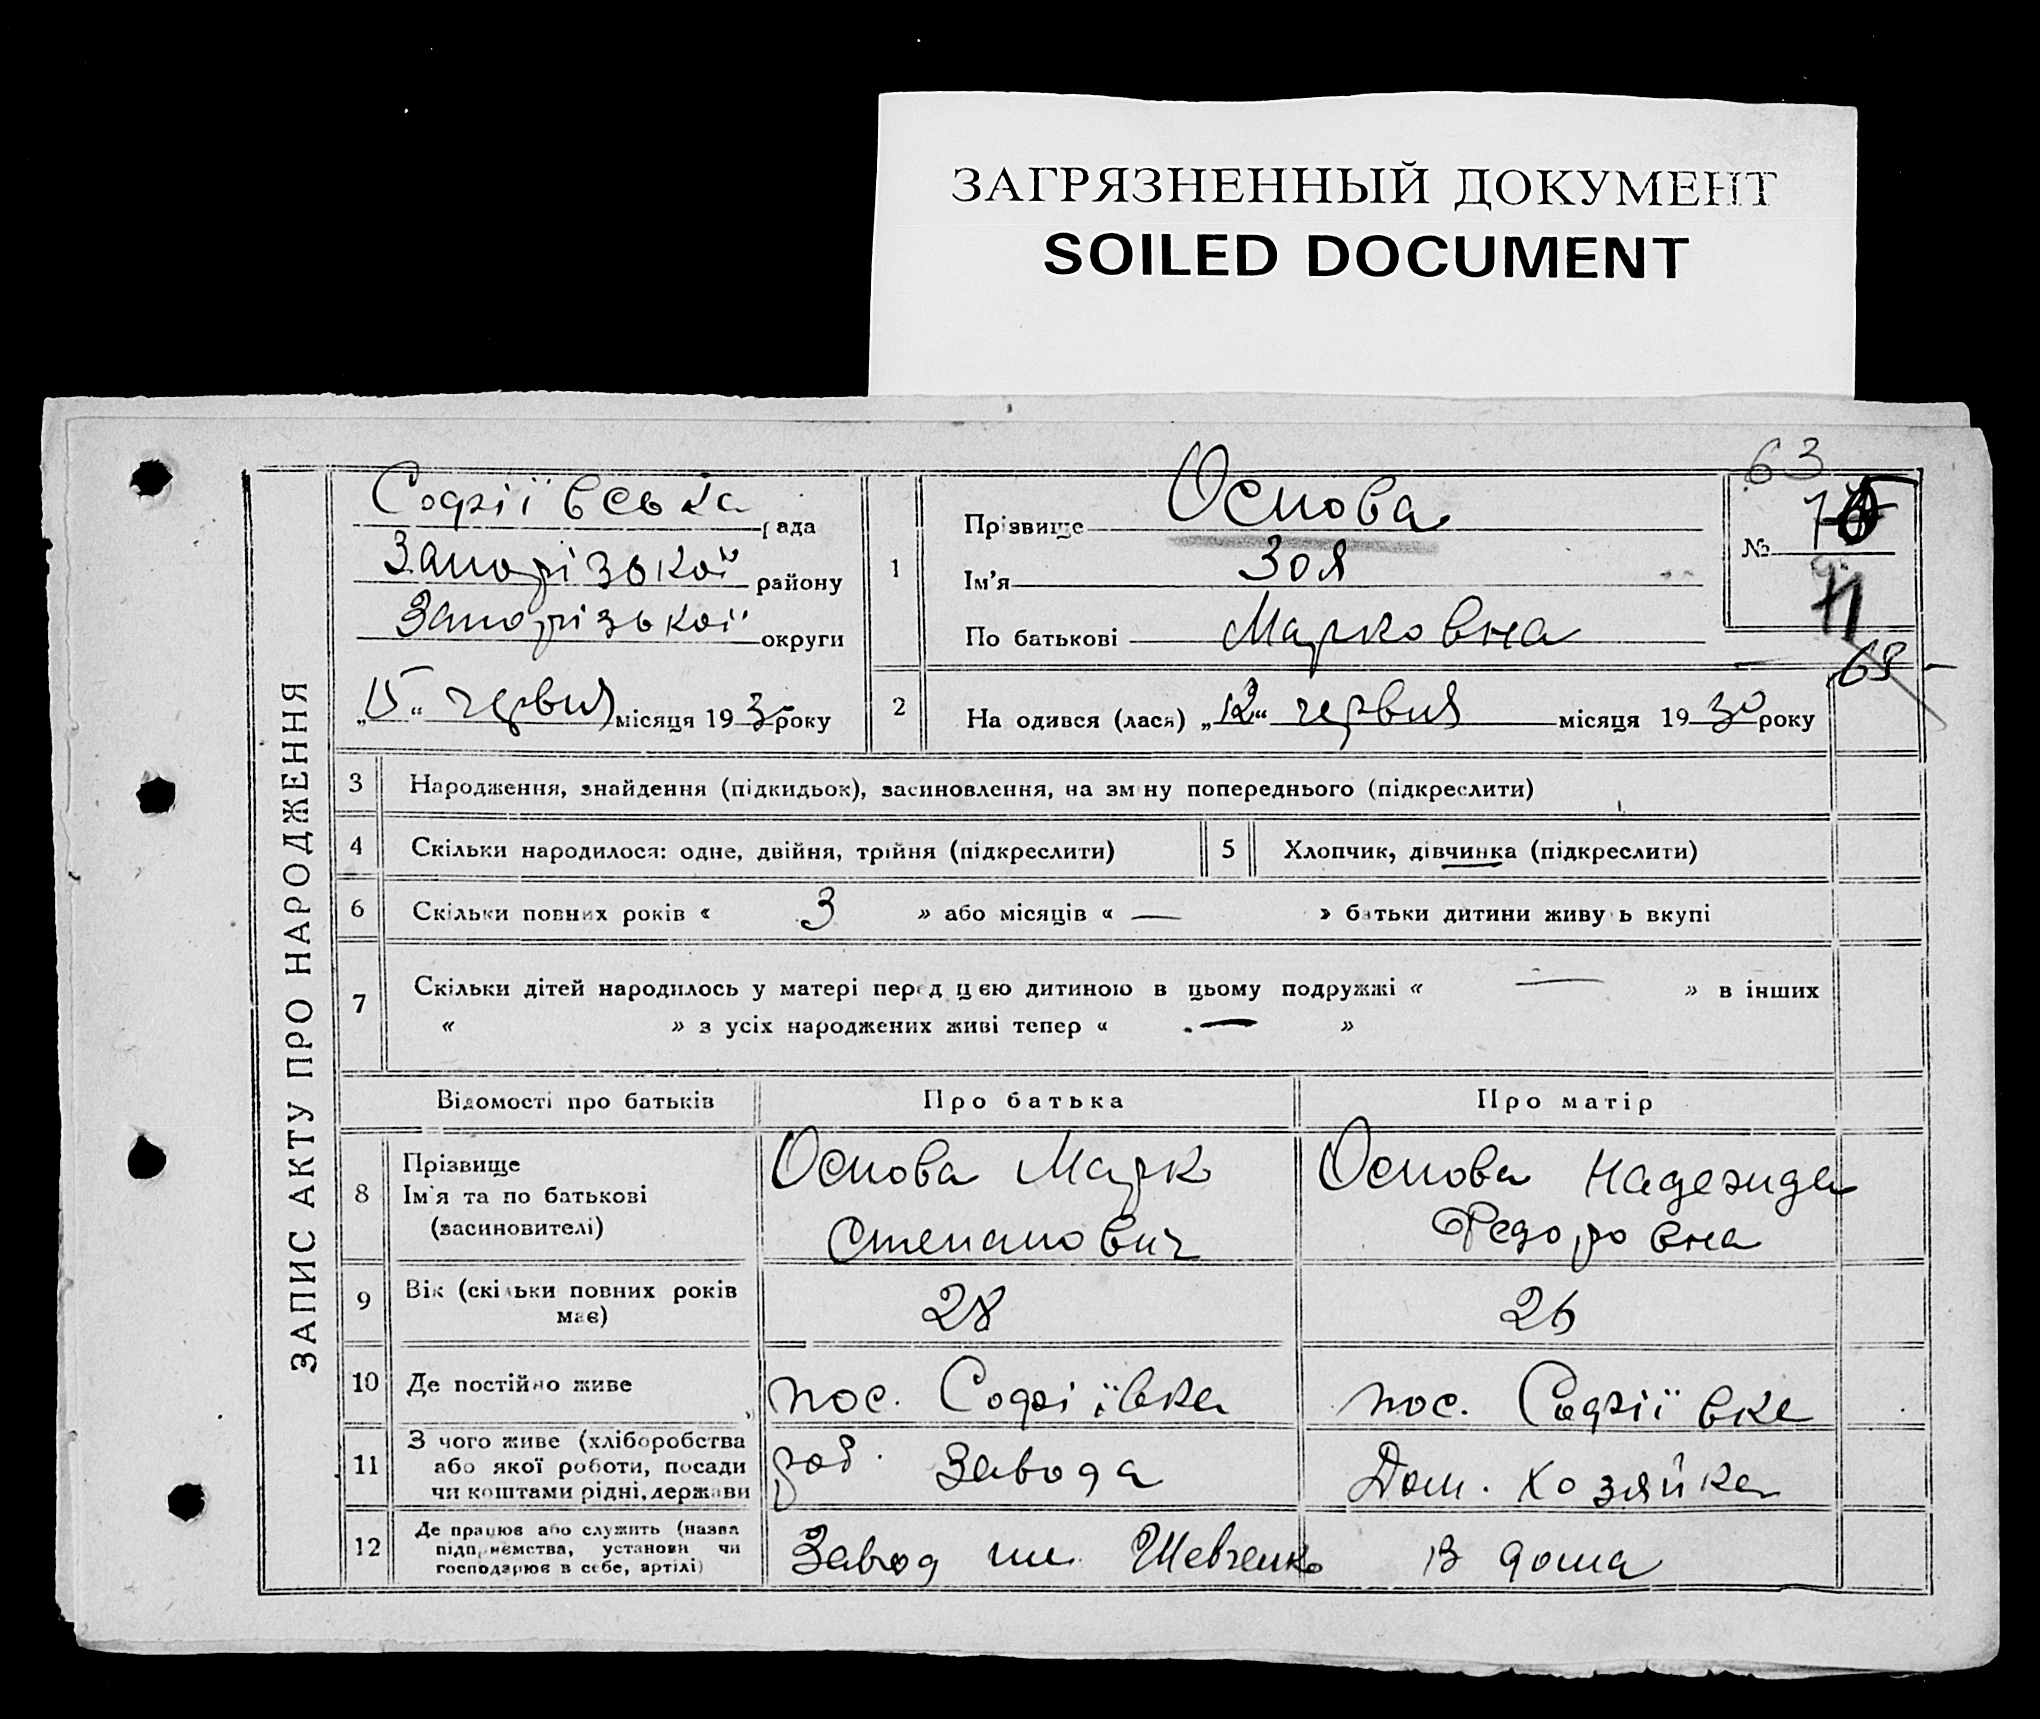 ЗАГРЯЗНЕННЫЙ ДОКУМЕНТ
SOILED DOCUMENT
63
ЗАПИС АКТУ ПРО НАРОДЖЕННЯ
Софіївська рада
Запорізької району
Запорізької округи
„15“ червня місяця 1930 року
1
Прізвище Основа
Ім'я Зоя
По батькові Марковна
№
71
68
2
На одився (лася) „12“ червня місяця 1930 року
3 Народження, знайдення (підкидьок), засиновлення, на зм ну попереднього (підкреслити)
4 Скільки народилося: одне, двійня, трійня (підкреслити)
5 Хлопчик, дівчинка (підкреслити)
6 Скільки повних років « 3 » або місяців « — » батьки дитини живу ь вкупі
7 Скільки дітей народилось у матері перед цею дитиною в цьому подружжі « — » в інших
« » з усіх народжених живі тепер « — »
Відомості про батьків
Про батька
Про матір
8
Прізвище
Ім'я та по батькові
(засиновителі)
Основа Марк
Степанович
Основа Надежда
Федоровна
9
Вік (скільки повних років
має)
28
26
10 Де постійно живе
пос. Софіївка
пос. Софіївке
11
З чого живе (хліборобства
або якої роботи, посади
чи коштами рідні, держави
роб. завода
Дом. хозяйка
12
Де працює або служить (назва
підприємства, установи чи
господарює в себе, артілі)
Завод им. Шевченко
В дома